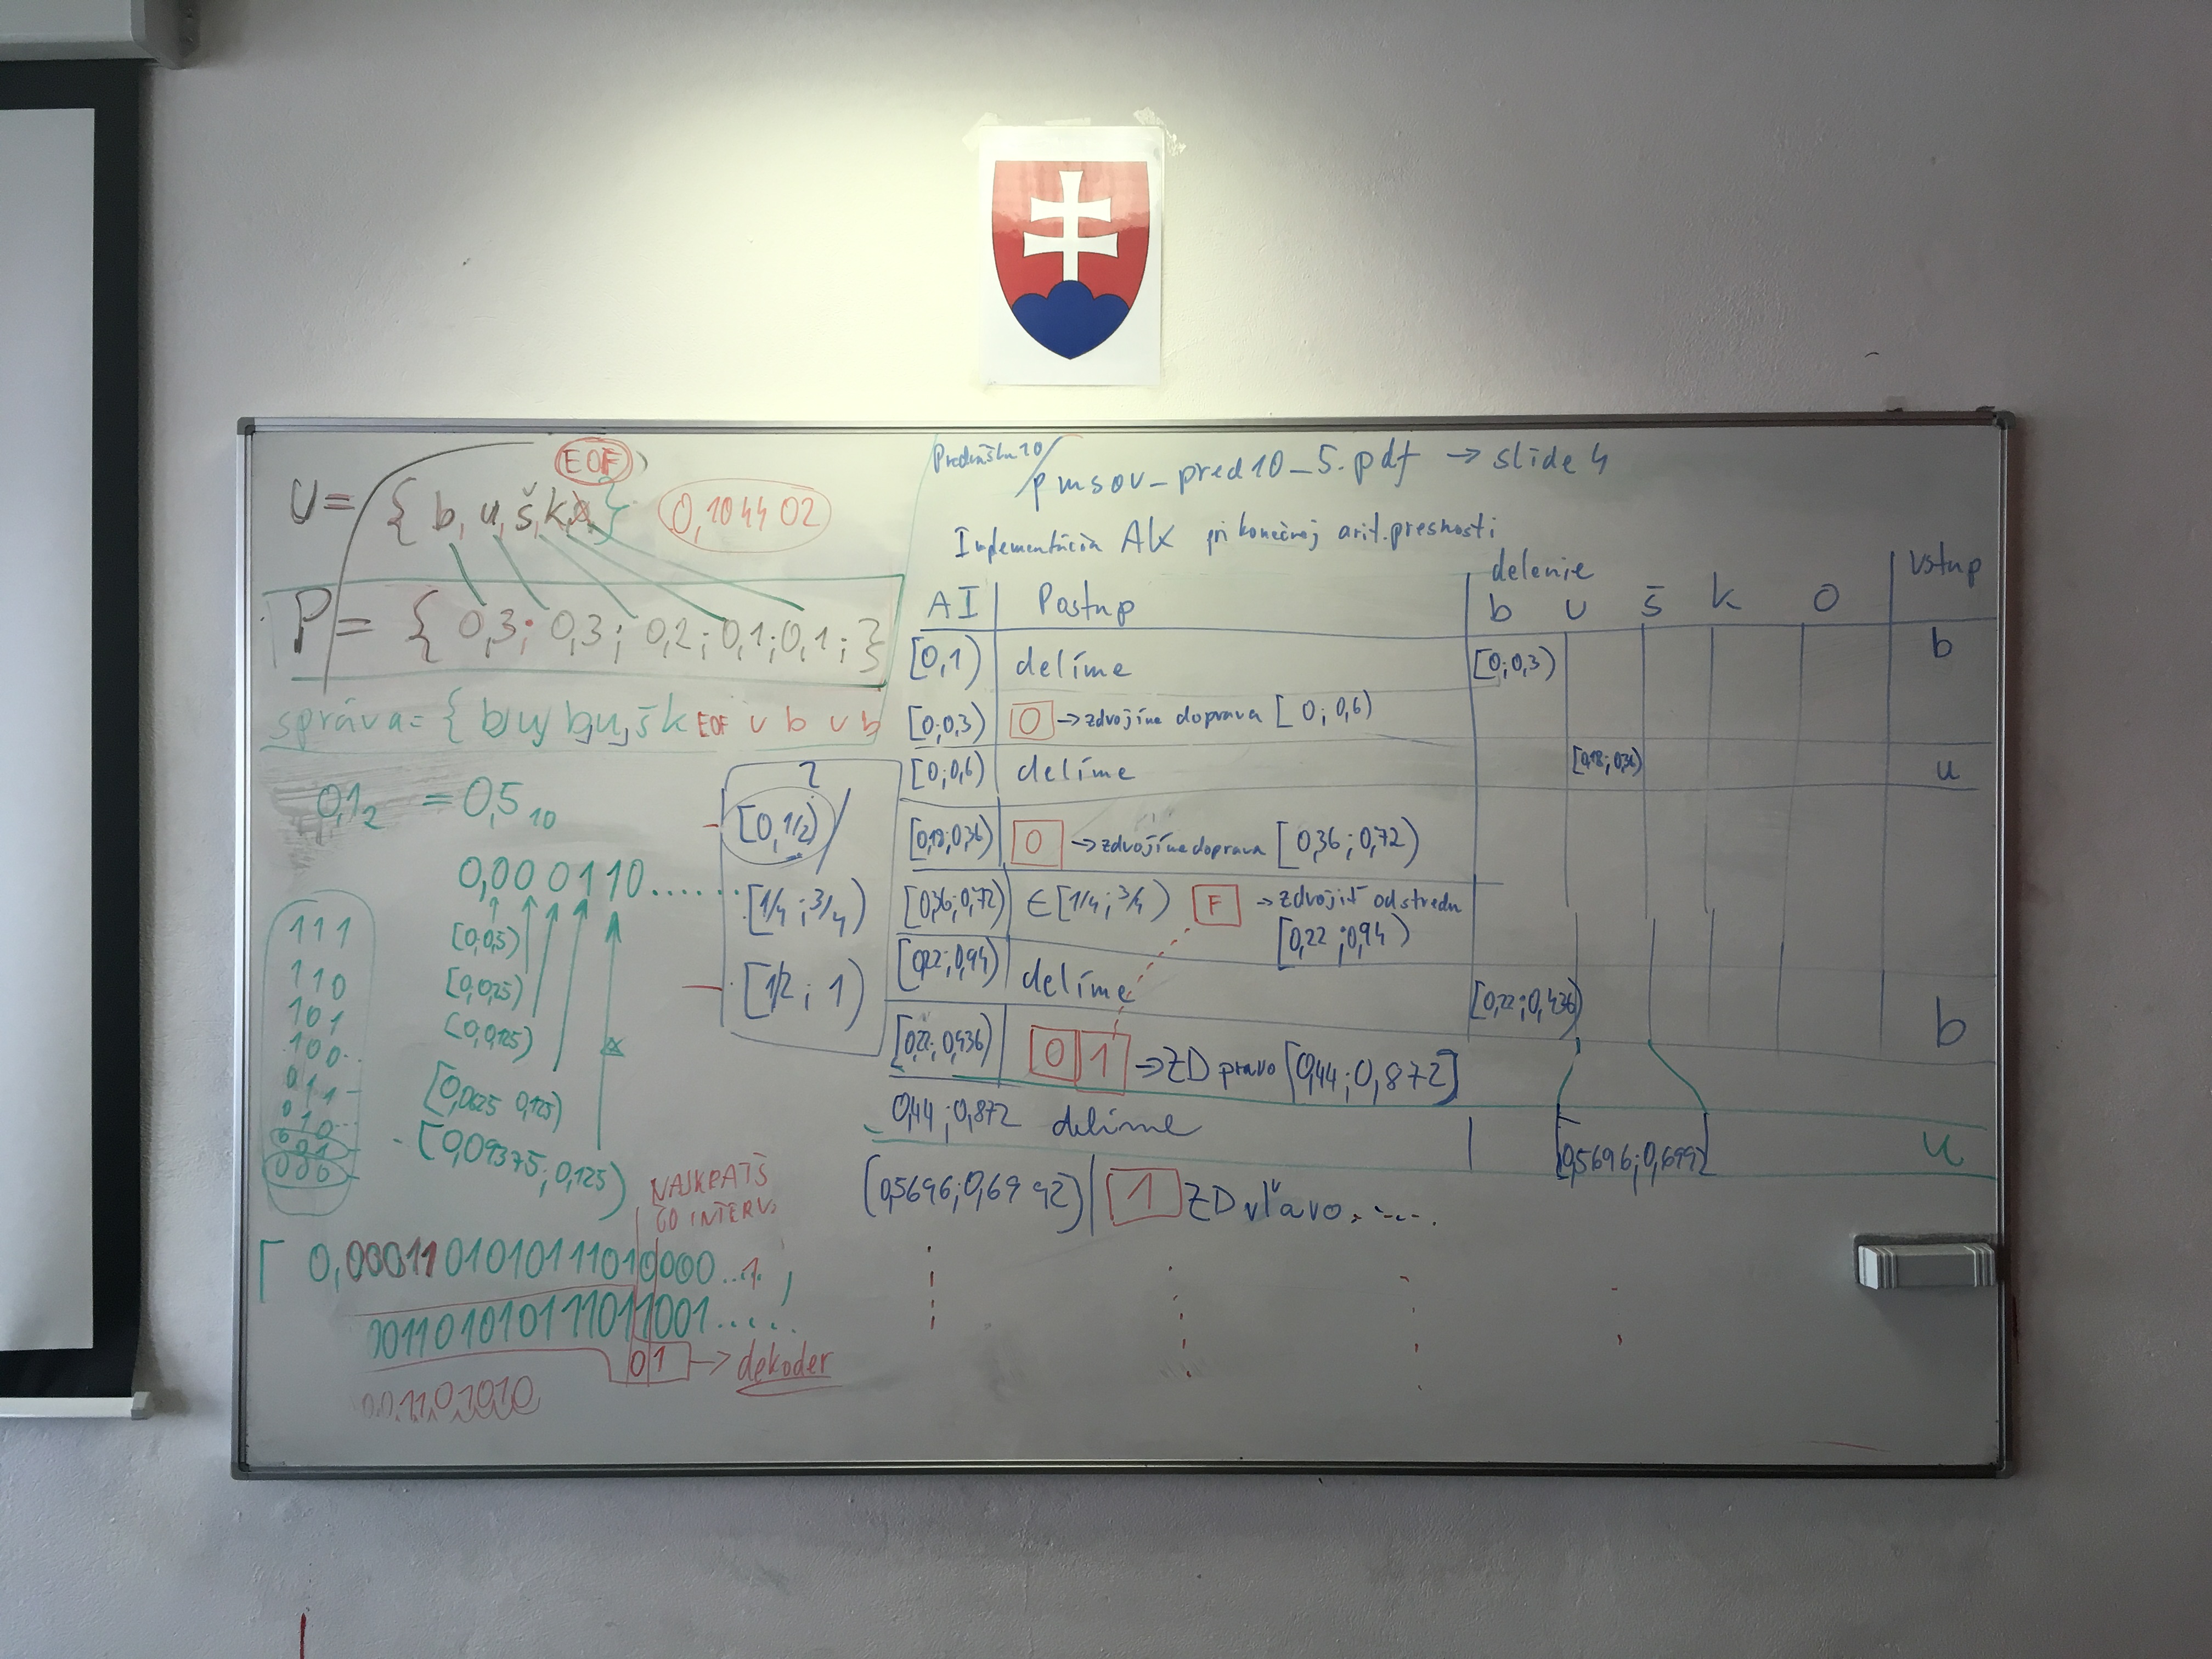 EOF
U = { b, u, š, k }
0,104402
P = { 0,3; 0,3; 0,2; 0,1; 0,1; }
správa = { b u b u š k EOF u b u b
0,1₂ = 0,5₁₀
0,000110......
[0;0,5)
[0;0,25)
[0;0,125)
[0,0625 0,125)
[0,09375; 0,125)
111
110
101
100
011
010
001
000
[0, 1/2)
[1/4; 3/4)
[1/2; 1)
NAJKRATŠ
GO INTERV.
[ 0,00011010101110100000...1 ;
00110101011101 1001.....
01 → dekoder
001101010
Prednáška 10 / pmsov_pred10_5.pdf → slide 4
Implementácia AK pri konečnej arit. presnosti
AI Postup delenie Vstup
b u š k o
[0,1) delíme [0;0,3) b
[0;0,3) 0 → zdvojíme doprava [0; 0,6)
[0;0,6) delíme [0,18; 0,36) u
[0,18;0,36) 0 → zdvojíme doprava [0,36; 0,72)
[0,36;0,72) ∈ [1/4; 3/4) F → zdvojiť od stredu
[0,22; 0,94)
[0,22; 0,94) delíme [0,22; 0,436) b
[0,22; 0,436) 0 1 → ZD pravo [0,44; 0,872]
0,44; 0,872 delíme [0,5696; 0,6992] u
[0,5696; 0,6992) 1 ZD vľavo.....